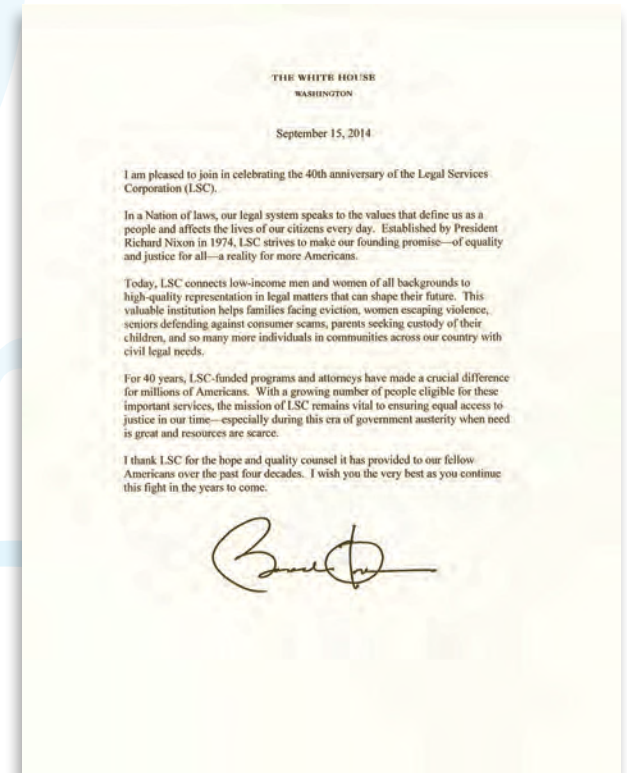 THE WHITE HOUSE
WASHINGTON
September 15, 2014
I am pleased to join in celebrating the 40th anniversary of the Legal Services
Corporation (LSC).
In a Nation of laws, our legal system speaks to the values that define us as a
people and affects the lives of our citizens every day. Established by President
Richard Nixon in 1974, LSC strives to make our founding promise—of equality
and justice for all—a reality for more Americans.
Today, LSC connects low-income men and women of all backgrounds to
high-quality representation in legal matters that can shape their future. This
valuable institution helps families facing eviction, women escaping violence,
seniors defending against consumer scams, parents seeking custody of their
children, and so many more individuals in communities across our country with
civil legal needs.
For 40 years, LSC-funded programs and attorneys have made a crucial difference
for millions of Americans. With a growing number of people eligible for these
important services, the mission of LSC remains vital to ensuring equal access to
justice in our time—especially during this era of government austerity when need
is great and resources are scarce.
I thank LSC for the hope and quality counsel it has provided to our fellow
Americans over the past four decades. I wish you the very best as you continue
this fight in the years to come.